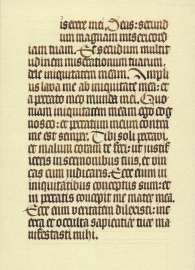 iserere mei, Deus: secund
um magnam misericord
iam tuam. Et secundum multit
udinem miserationum tuarum,
dele iniquitatem meam. Ampli
us lava me ab iniquitate mea: et
a peccato meo munda me. Quo
niam iniquitatem meam ego cog
nosco: et peccatum meum contra
me est semper. Tibi soli peccavi,
et malum coram te feci: ut justifi
ceris in sermonibus tuis, et vin
cas cum judicaris. Ecce enim in
iniquitatibus conceptus sum: et
in peccatis concepit me mater mea.
Ecce enim veritatem dilexisti: inc
erta et occulta sapientiæ tuæ ma
nifestasti mihi.